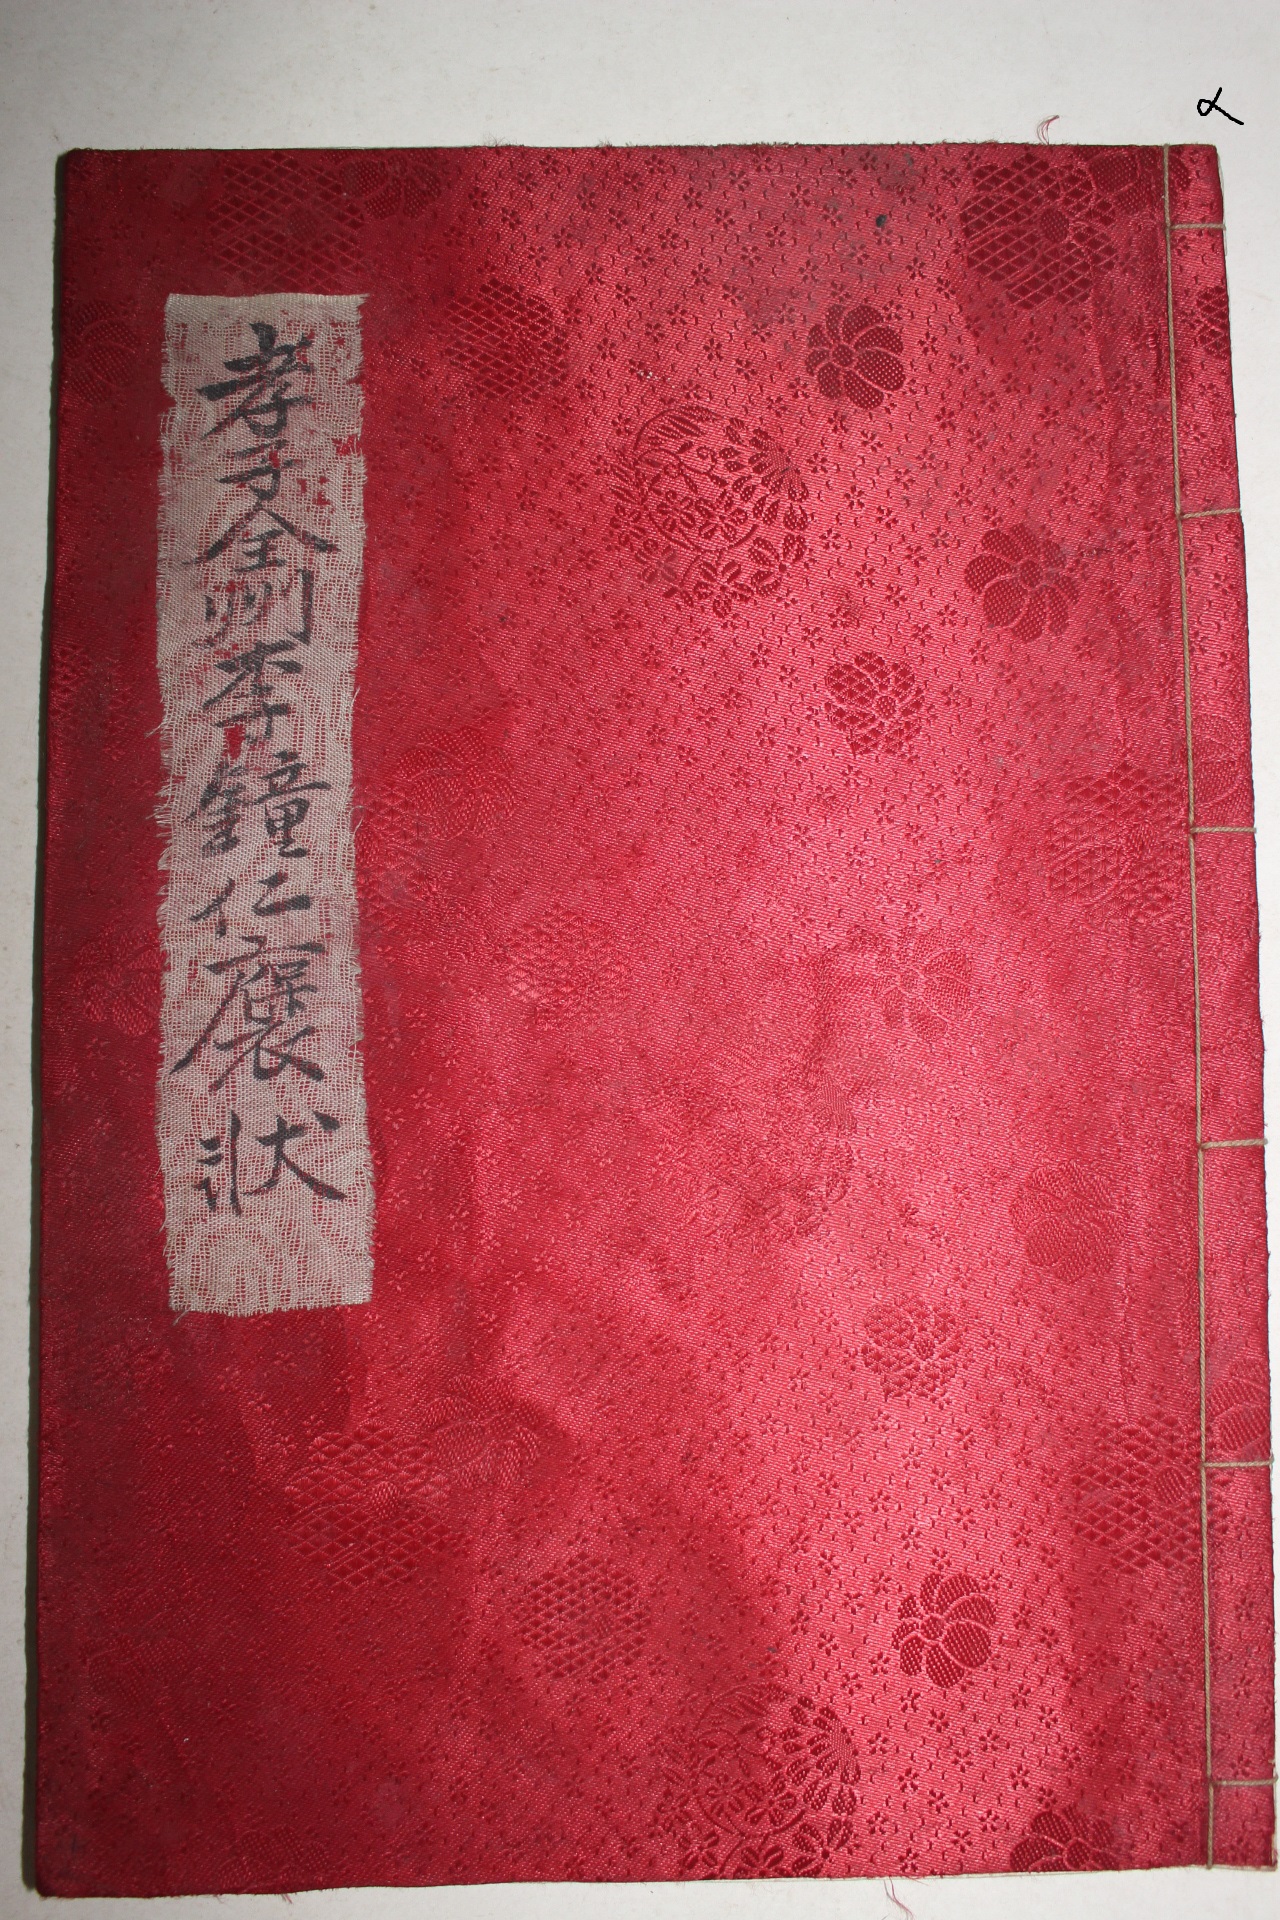 孝子全州李鐘仁褒狀